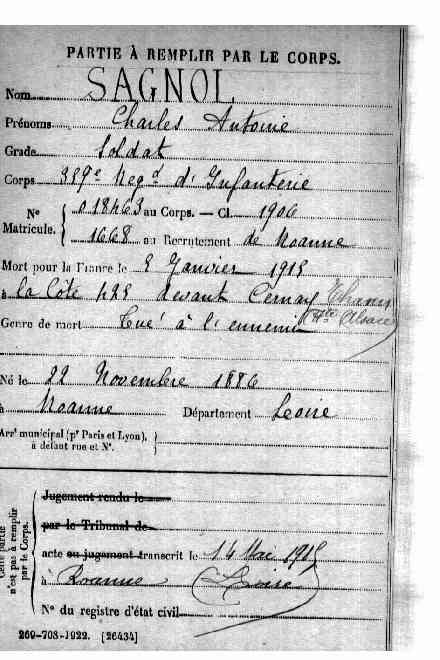 PARTIE À REMPLIR PAR LE CORPS.
Nom SAGNOL
Prénoms Charles Antoine
Grade Soldat
Corps 359e Regt d'Infanterie
No Matricule. { 018463 au Corps. — Cl. 1906
1668 au Recrutement de Roanne
Mort pour la France le Janvier 1915
à la Côte 425 devant Cernay Thann
Hte Alsace
Genre de mort Tué à l'ennemi
Né le 22 Novembre 1886
à Roanne Département Loire
Arrt municipal (pr Paris et Lyon),
à défaut rue et No.
Cette partie
n'est pas à remplir
par le Corps.
Jugement rendu le
par le Tribunal de
acte ou jugement transcrit le 14 Mai 1915
à Roanne (Loire)
No du registre d'état civil
269-708-1922. [26434]